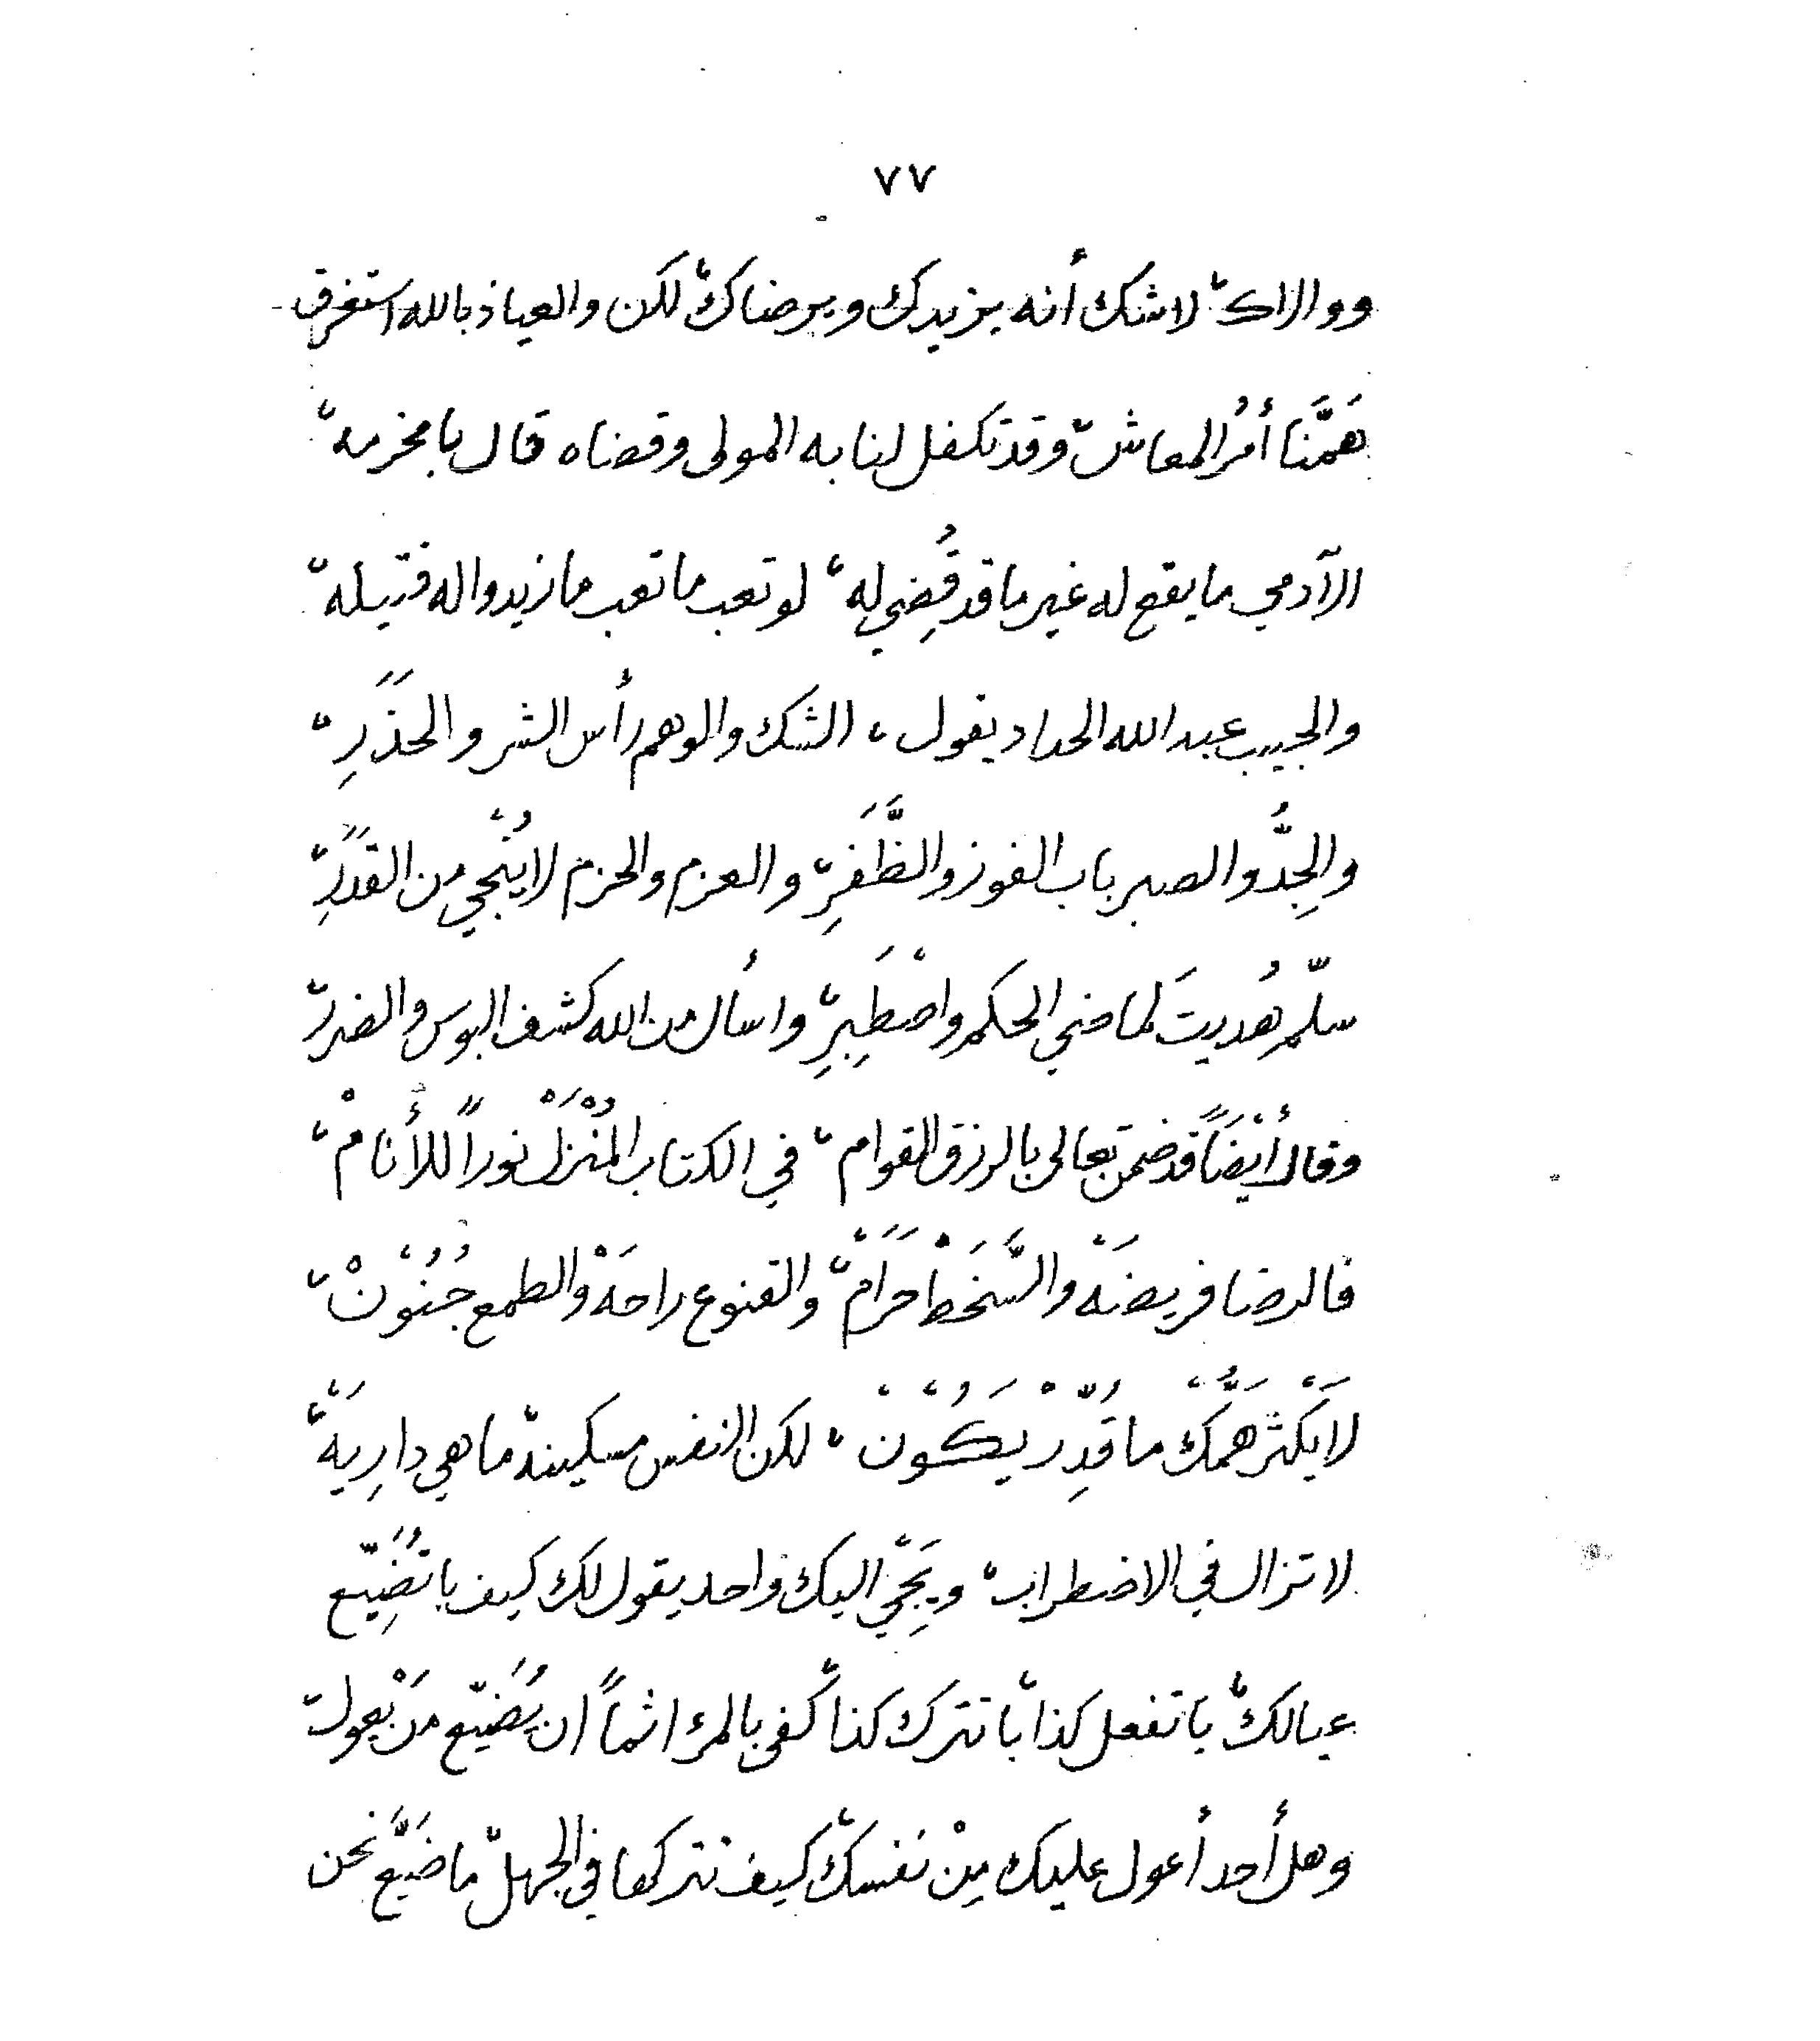 ٧٧
ووالاك، لاشك أنه يزيدك ويرضاك، لكن والعياذ بالله استغرق
هَمَّنَا أمُر المعاش، وقد تكفل لنا به المولى وقضاه قال بامخرمه،
الآدمي ما يقع له غير ما قد قُضِي له، لو تعب ما تعب ما زيدوا له فتيله،
والحبيب عبد الله الحداد يقول، الشك والوهم رأس الشر والحذَرِ،
والجِدُّ والصبر باب الفوز والظَّفَرِ، والعزم والحزم لا يُنْجي من القدَرِ،
سلّم هُديتَ لماضي الحكم واصْطَبِرِ، واسأل من الله كشف البوس والضرر،
وقال أيْضَاً قد ضمن تعالى بالرزق القوام، في الكتاب المُنْزَلْ نوراً للأنامْ،
فالرضا فريضَهْ والسَّخَطْ حَرَامْ، والقنوع راحَهْ والطمع جُنُوْنْ،
لا يَكْثر هَمُّكْ ما قُدِّرْ يَكُوْنْ، لكن النفس مسكينة ما هي دارِيَهْ،
لا تزال في الاضطراب، ويَجْي اليك واحد يقول لك كيف با تضَيِّع
عيالك، با تفعل كذا، با تترك كذا، كفى بالمرء اثماً ان يُضَيّع مَنْ يعول،
وهل أحد أعول عليك مِنْ نفسك، كيف تتركها في الجهل، ما ضَيَّع نحن